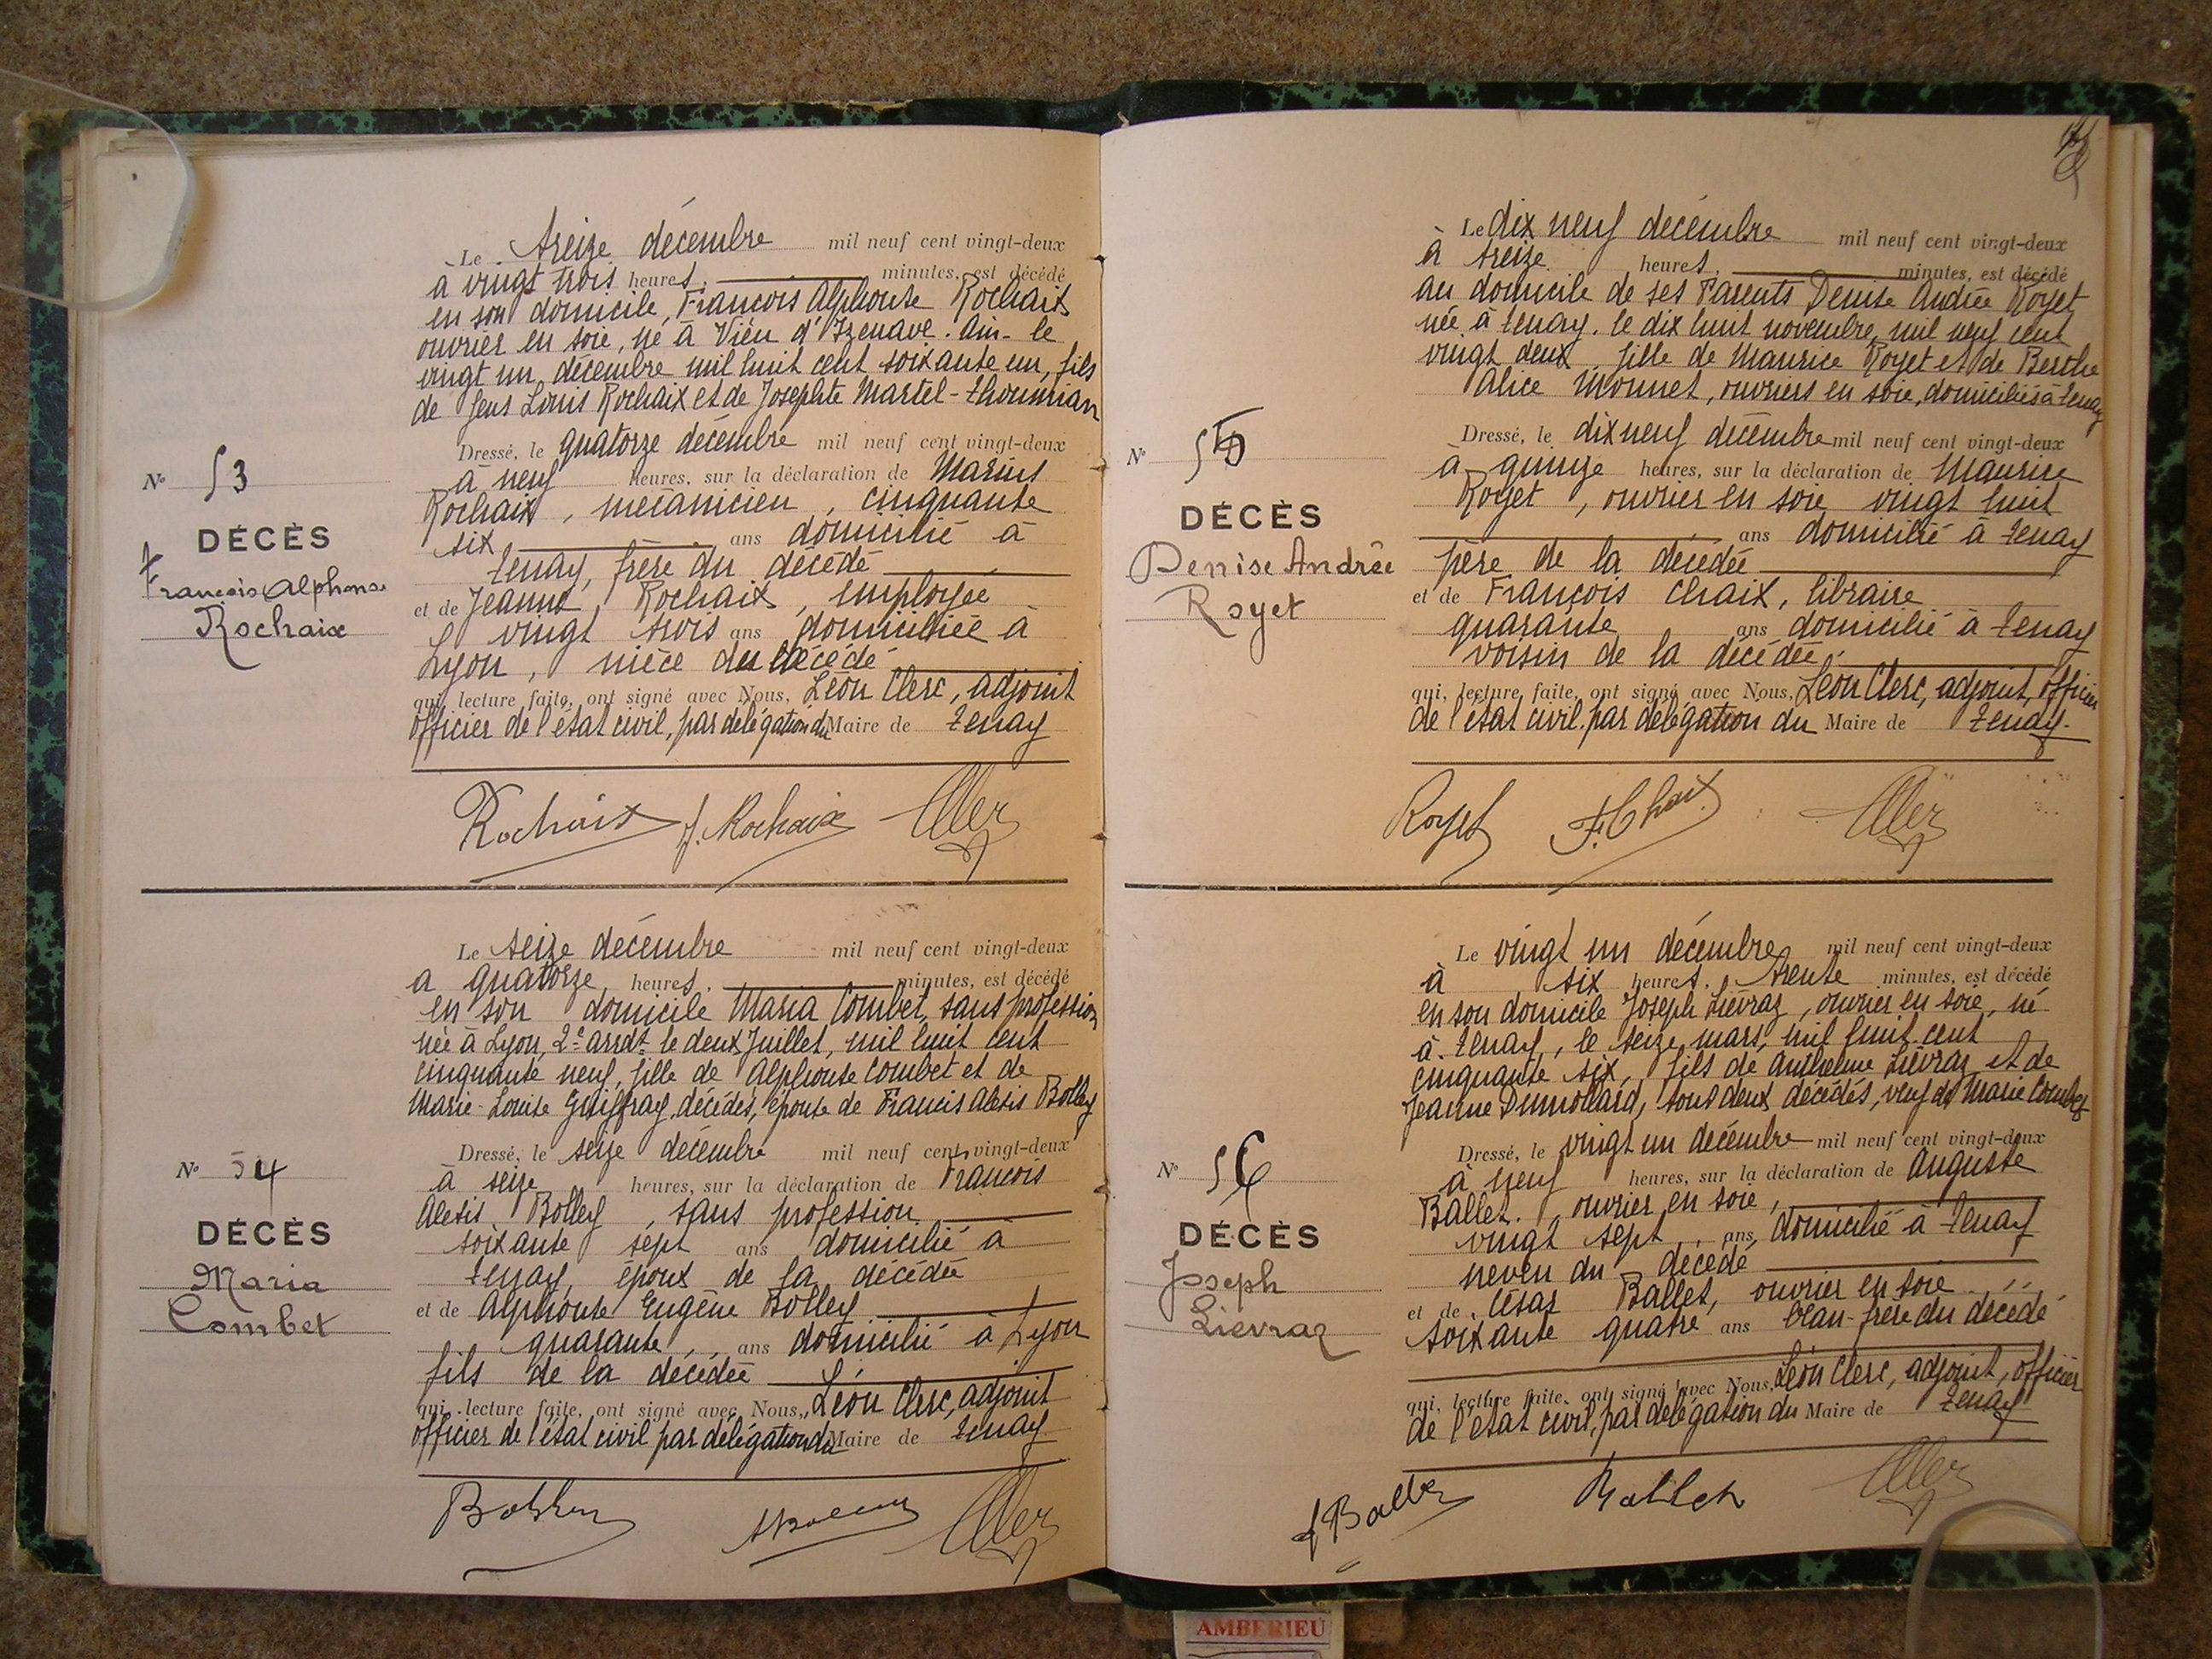 Le treize décembre mil neuf cent vingt-deux
à vingt trois heures, minutes, est décédé
en son domicile, François Alphonse Rochaix
ouvrier en soie, né à Vieu d'Izenave. Ain- le
vingt un décembre mil huit cent soixante un, fils
de feus Louis Rochaix et de Josephte Martel-Thoumian
Dressé, le quatorze décembre mil neuf cent vingt-deux
à neuf heures, sur la déclaration de Marius
Rochaix, mécanicien, cinquante
six ans domicilié à
Tenay, frère du décédé
et de Jeanne Rochaix, employée
vingt trois ans domiciliée à
Lyon, nièce du décédé
qui, lecture faite, ont signé avec Nous, Léon Clerc, adjoint
officier de l'état civil, par délégation du Maire de Tenay
N° 53
DÉCÈS
François Alphonse
Rochaix
Rochaix J. Rochaix
Le seize décembre mil neuf cent vingt-deux
à quatorze heures, minutes, est décédé
en son domicile Maria Combet, sans profession
née à Lyon, 2e arrdt le deux Juillet, mil huit cent
cinquante neuf, fille de Alphonse Combet et de
Marie-Louise Guiffray, décédés, épouse de Francis Alexis Bolley
Dressé, le seize décembre mil neuf cent vingt-deux
à seize heures, sur la déclaration de François
Alexis Bolley, sans profession
soixante sept ans domicilié à
Tenay, époux de la décédée
et de Alphonse Eugène Bolley
quarante ans domicilié à Lyon
fils de la décédée
qui, lecture faite, ont signé avec Nous, Léon Clerc, adjoint
officier de l'état civil par délégation du Maire de Tenay
N° 54
DÉCÈS
Maria
Combet
Le dix neuf décembre mil neuf cent vingt-deux
à treize heures, minutes, est décédé
au domicile de ses Parents Denise Andrée Royet
née à Tenay. le dix huit novembre, mil neuf cent
vingt deux fille de Maurice Royet et de Berthe
Alice Monnet, ouvriers en soie, domiciliés à Tenay
Dressé, le dix neuf décembre mil neuf cent vingt-deux
à quinze heures, sur la déclaration de Maurice
Royet, ouvrier en soie vingt huit
ans domicilié à Tenay
père de la décédée
et de François Chaix, libraire
quarante ans domicilié à Tenay
voisin de la décédée,
qui, lecture faite, ont signé avec Nous, Léon Clerc, adjoint, officier
de l'état civil, par délégation du Maire de Tenay.
N° 55
DÉCÈS
Denise Andrée
Royet
Royet F. Chaix
Le vingt un décembre mil neuf cent vingt-deux
à six heures, trente minutes, est décédé
en son domicile Joseph Lievraz, ouvrier en soie, né
à Tenay, le seize mars, mil huit cent
cinquante six, fils de Anthelme Lievraz et de
Jeanne Dumollard, tous deux décédés, veuf de Marie Combet
Dressé, le vingt un décembre mil neuf cent vingt-deux
à neuf heures, sur la déclaration de Auguste
Ballet, ouvrier en soie,
vingt sept ans, domicilié à Tenay
neveu du décédé
et de César Ballet, ouvrier en soie
soixante quatre ans beau-frère du décédé
qui, lecture faite, ont signé avec Nous, Léon Clerc, adjoint, officier
de l'état civil, par délégation du Maire de Tenay
N° 56
DÉCÈS
Joseph
Lievraz
AMBERIEU